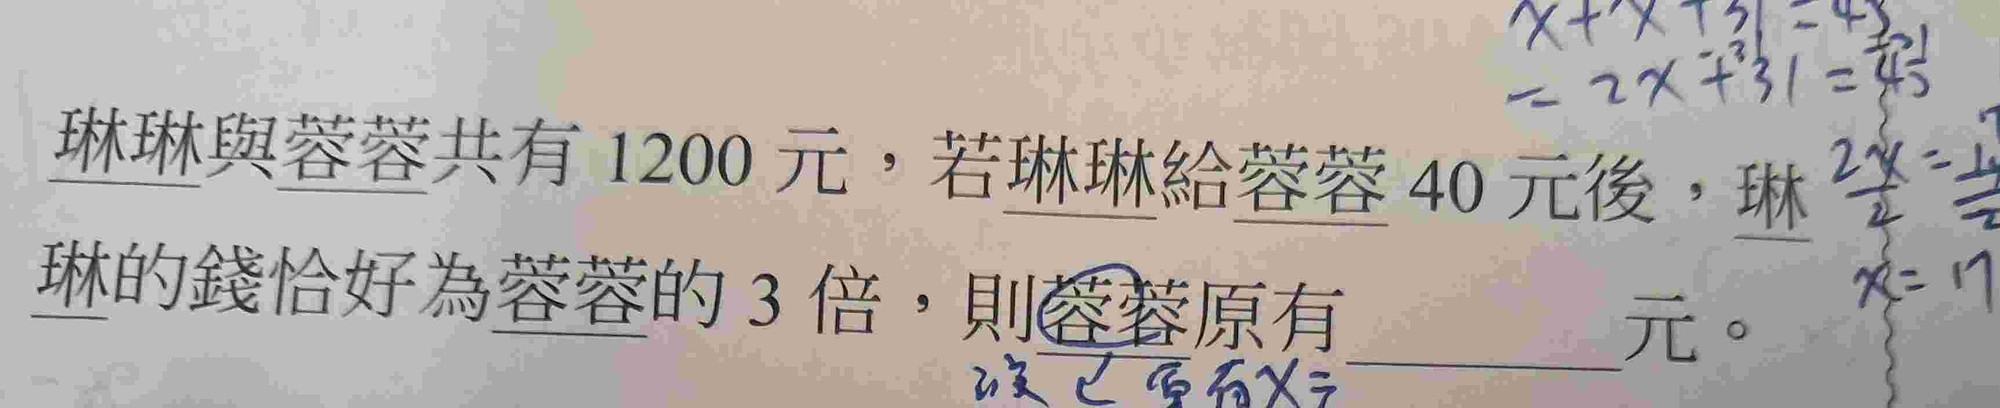 x+x+31=45
=2x+31=45
-31 -31
琳琳與蓉蓉共有 1200 元，若琳琳給蓉蓉 40 元後，琳
琳的錢恰好為蓉蓉的 3 倍，則蓉蓉原有______元。
2x
2
x=17
設
有x元